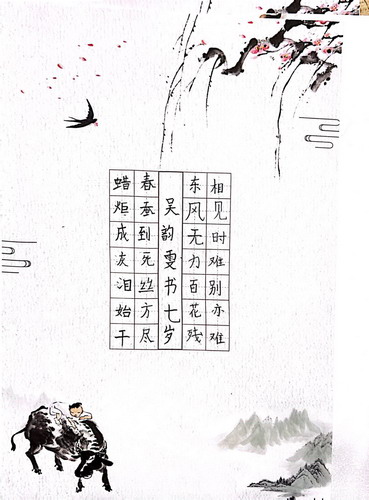 相见时难别亦难
东风无力百花残
春蚕到死丝方尽
蜡炬成灰泪始干
吴韵雯书七岁